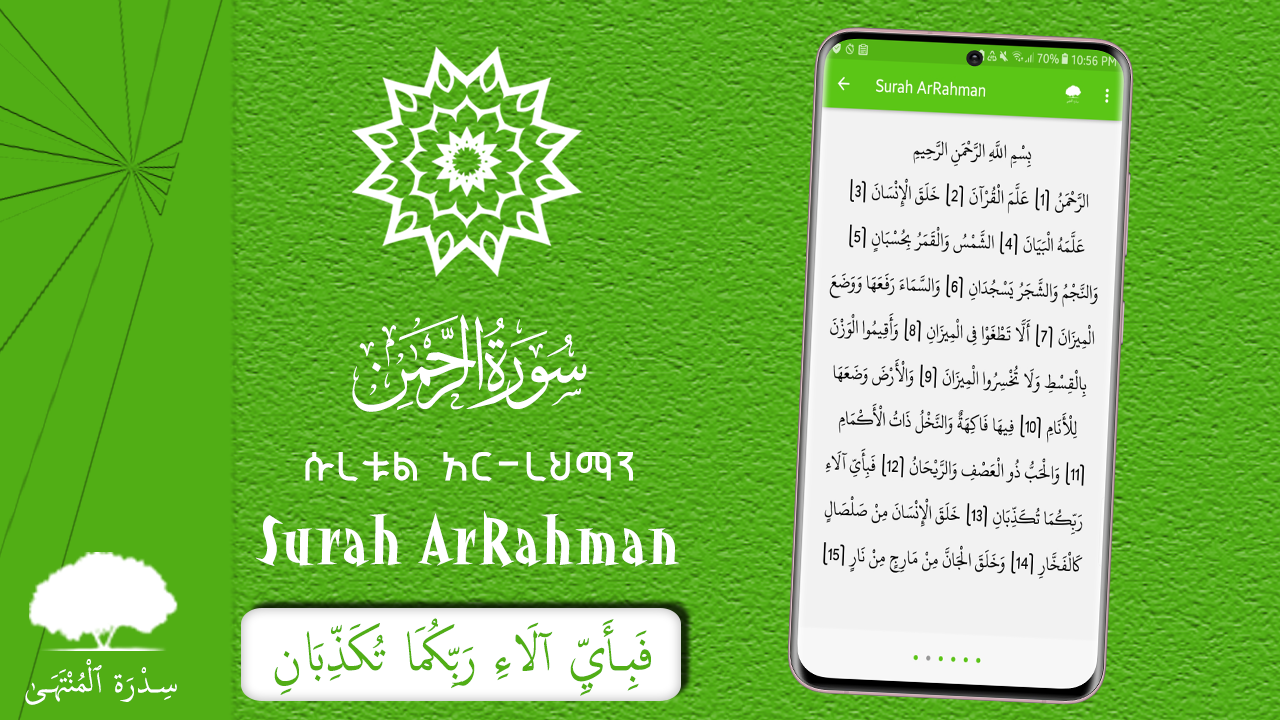 سُورَةُ الرَّحْمَٰن
ሱረቱል አር-ረህማን
Surah ArRahman
فَبِأَيِّ آلَاءِ رَبِّكُمَا تُكَذِّبَانِ
سِدْرَة ٱلْمُنْتَهَىٰ
70% 10:56 PM
Surah ArRahman
بِسْمِ اللَّهِ الرَّحْمَنِ الرَّحِيمِ
الرَّحْمَنُ [1] عَلَّمَ الْقُرْآنَ [2] خَلَقَ الْإِنْسَانَ [3]
عَلَّمَهُ الْبَيَانَ [4] الشَّمْسُ وَالْقَمَرُ بِحُسْبَانٍ [5]
وَالنَّجْمُ وَالشَّجَرُ يَسْجُدَانِ [6] وَالسَّمَاءَ رَفَعَهَا وَوَضَعَ
الْمِيزَانَ [7] أَلَّا تَطْغَوْا فِي الْمِيزَانِ [8] وَأَقِيمُوا الْوَزْنَ
بِالْقِسْطِ وَلَا تُخْسِرُوا الْمِيزَانَ [9] وَالْأَرْضَ وَضَعَهَا
لِلْأَنَامِ [10] فِيهَا فَاكِهَةٌ وَالنَّخْلُ ذَاتُ الْأَكْمَامِ
[11] وَالْحَبُّ ذُو الْعَصْفِ وَالرَّيْحَانُ [12] فَبِأَيِّ آلَاءِ
رَبِّكُمَا تُكَذِّبَانِ [13] خَلَقَ الْإِنْسَانَ مِنْ صَلْصَالٍ
كَالْفَخَّارِ [14] وَخَلَقَ الْجَانَّ مِنْ مَارِجٍ مِنْ نَارٍ [15]